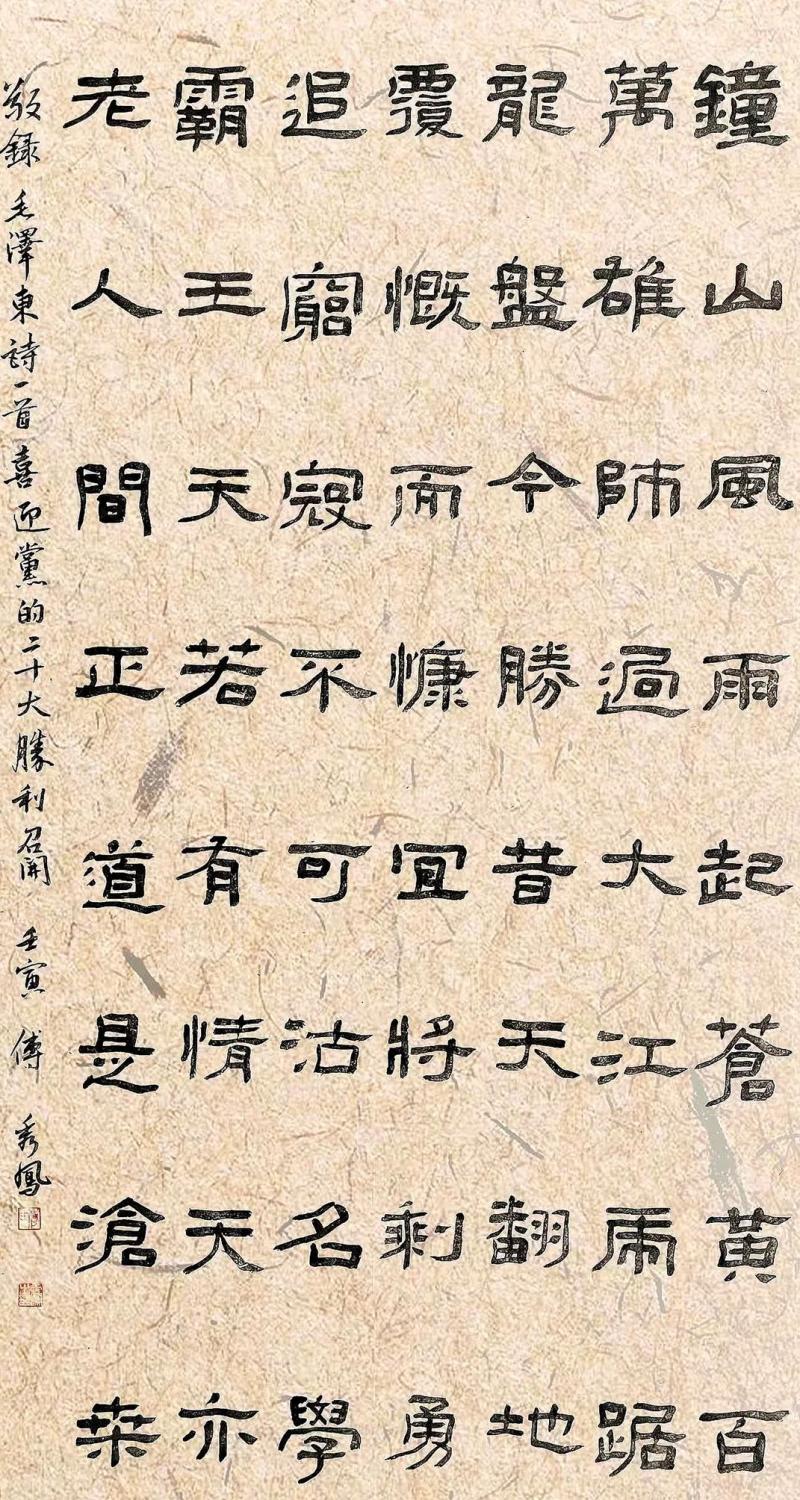 鐘山風雨起蒼黃百
萬雄師過大江虎踞
龍盤今勝昔天翻地
覆慨而慷宜將剩勇
追窮寇不可沽名學
霸王天若有情天亦
老人間正道是滄桒
敬錄毛澤東詩一首喜迎黨的二十大勝利召開 壬寅 傅秀鳳